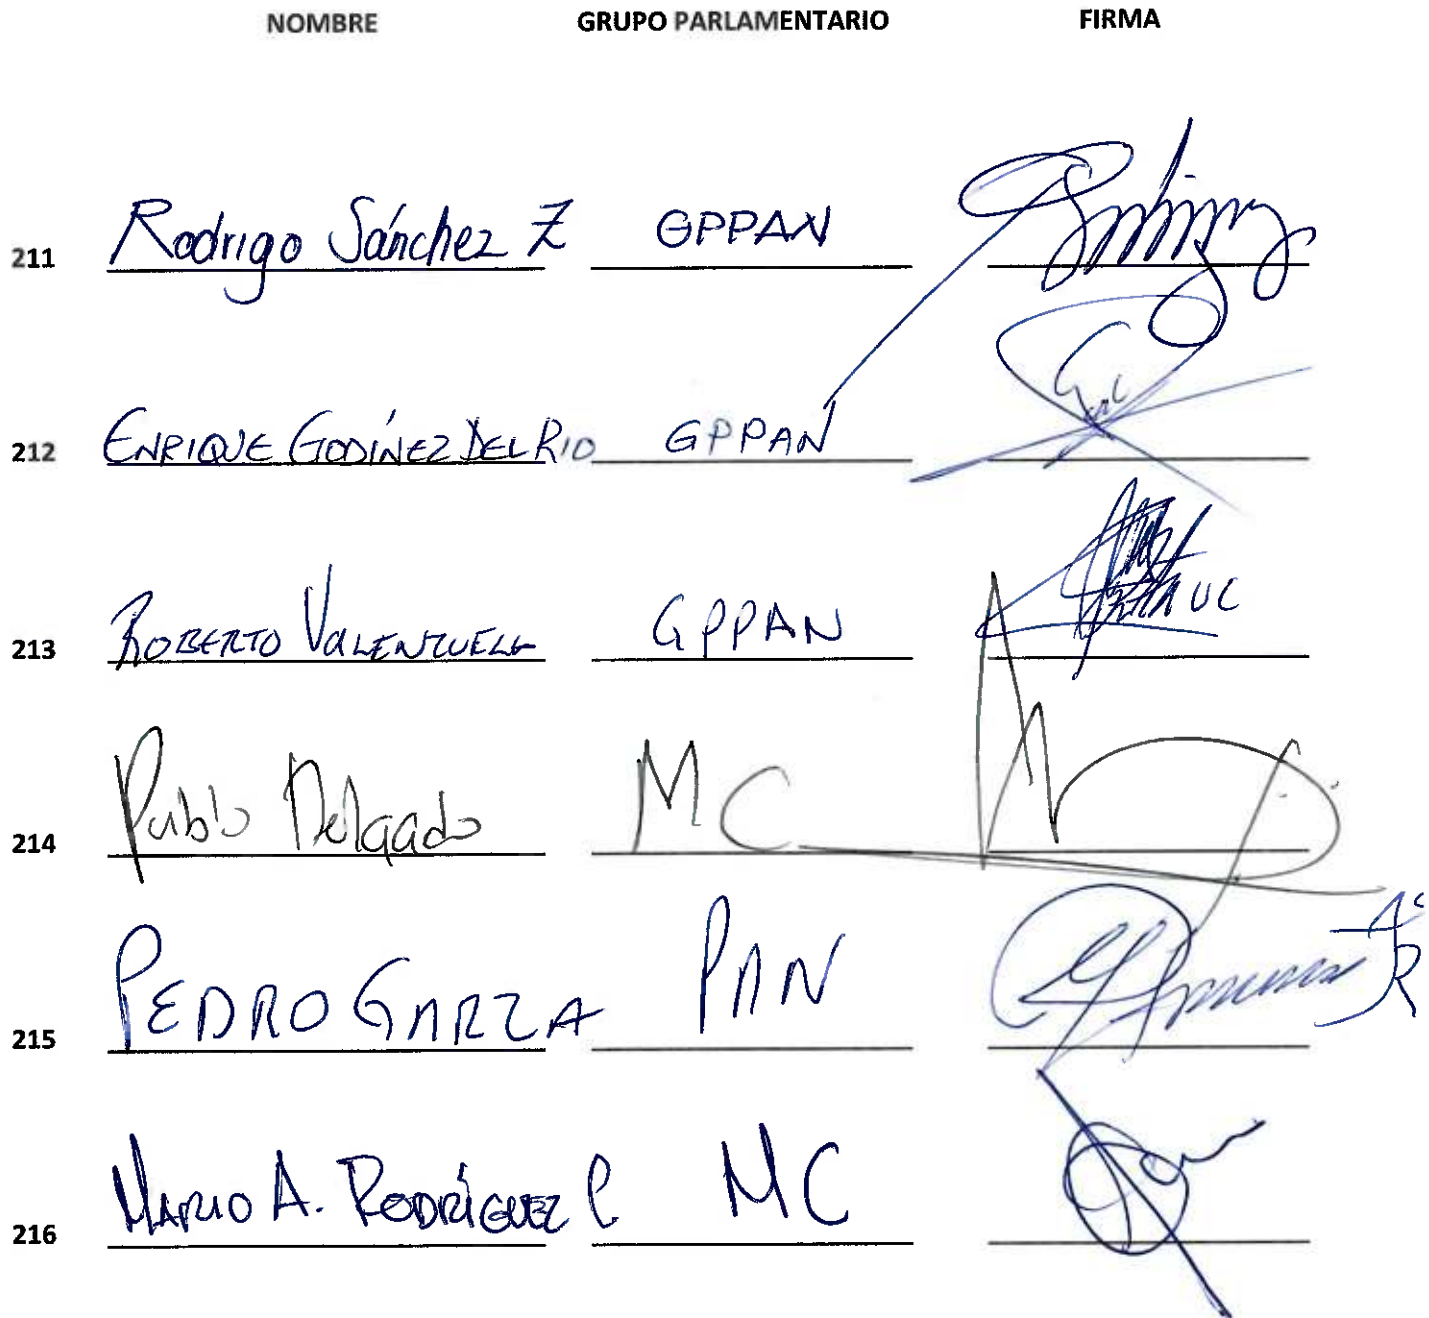 NOMBRE GRUPO PARLAMENTARIO FIRMA
211 Rodrigo Sánchez Z GPPAN
212 ENRIQUE GODÍNEZ DEL RIO GPPAN
213 ROBERTO VALENZUELA GPPAN
214 Pablo Delgado MC
215 PEDRO GARZA PAN
216 MARIO A. RODRÍGUEZ C MC